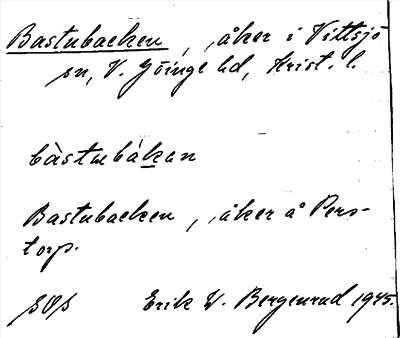 Bastubacken, åker i Vittsjö
sn, V. Göinge hd, Krist. l.
bàstubákan
Bastubacken, åker å Pers-
torp.
SOS Erik W. Bergenrud 1945.